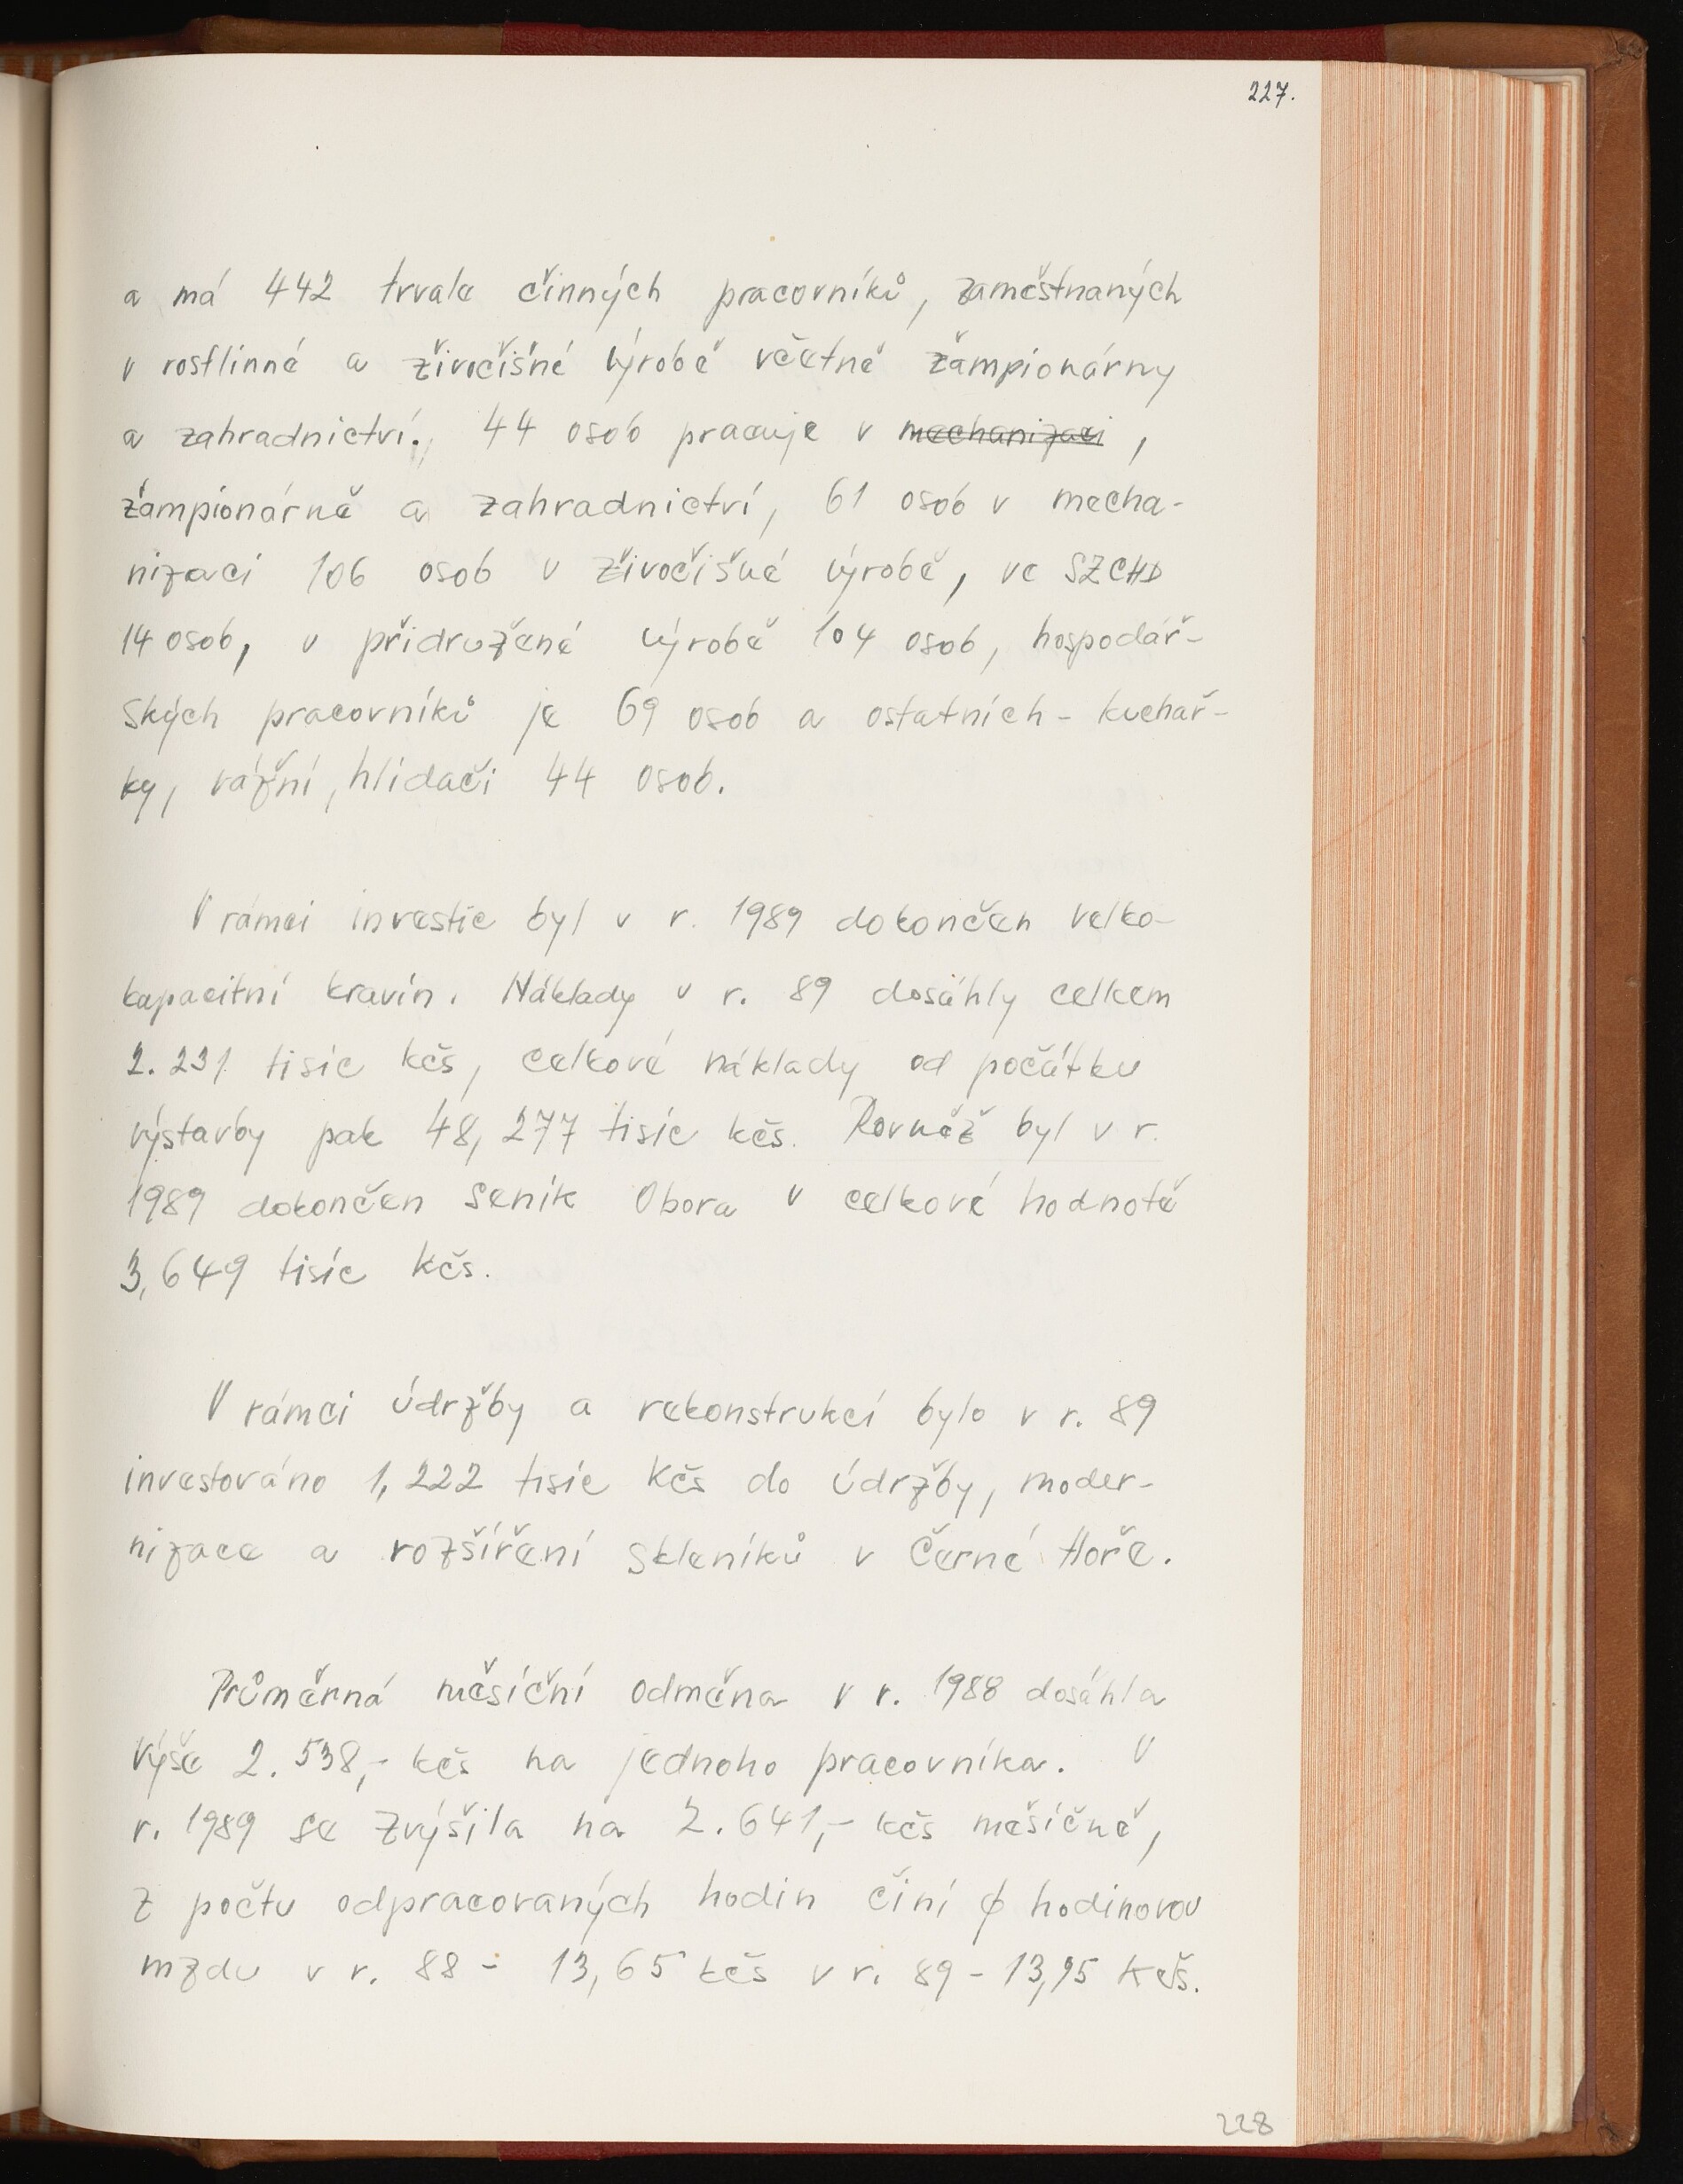 227.
a má 442 trvale činných pracovníků, zaměstnaných
v rostlinné a živočišné výrobě včetně žampionárny
a zahradnictví. 44 osob pracuje v mechanizaci ,
žampionárně a zahradnictví, 61 osob v mecha-
nizaci 106 osob v živočišné výrobě, ve SZCHD
14 osob, v přidružené výrobě 104 osob, hospodář-
ských pracovníků je 69 osob a ostatních - kuchař-
ky, vážní, hlídači 44 osob.
V rámci investic byl v r. 1989 dokončen velko-
kapacitní kravín. Náklady v r. 89 dosáhly celkem
2. 231 tisíc kčs, celkové náklady od počátku
výstavby pak 48, 277 tisíc kčs. Rovněž byl v r.
1989 dokončen seník Obora v celkové hodnotě
3, 649 tisíc kčs.
V rámci údržby a rekonstrukcí bylo v r. 89
investováno 1, 222 tisíc Kčs do údržby, moder-
nizace a rozšíření skleníků v Černé Hoře.
Průměrná měsíční odměna v r. 1988 dosáhla
výše 2. 538,- kčs na jednoho pracovníka. V
r. 1989 se zvýšila na 2. 641,- kčs měsíčně,
z počtu odpracovaných hodin činí ϕ hodinovou
mzdu v r. 88 - 13, 65 kčs v r. 89 - 13,95 Kčs.
228